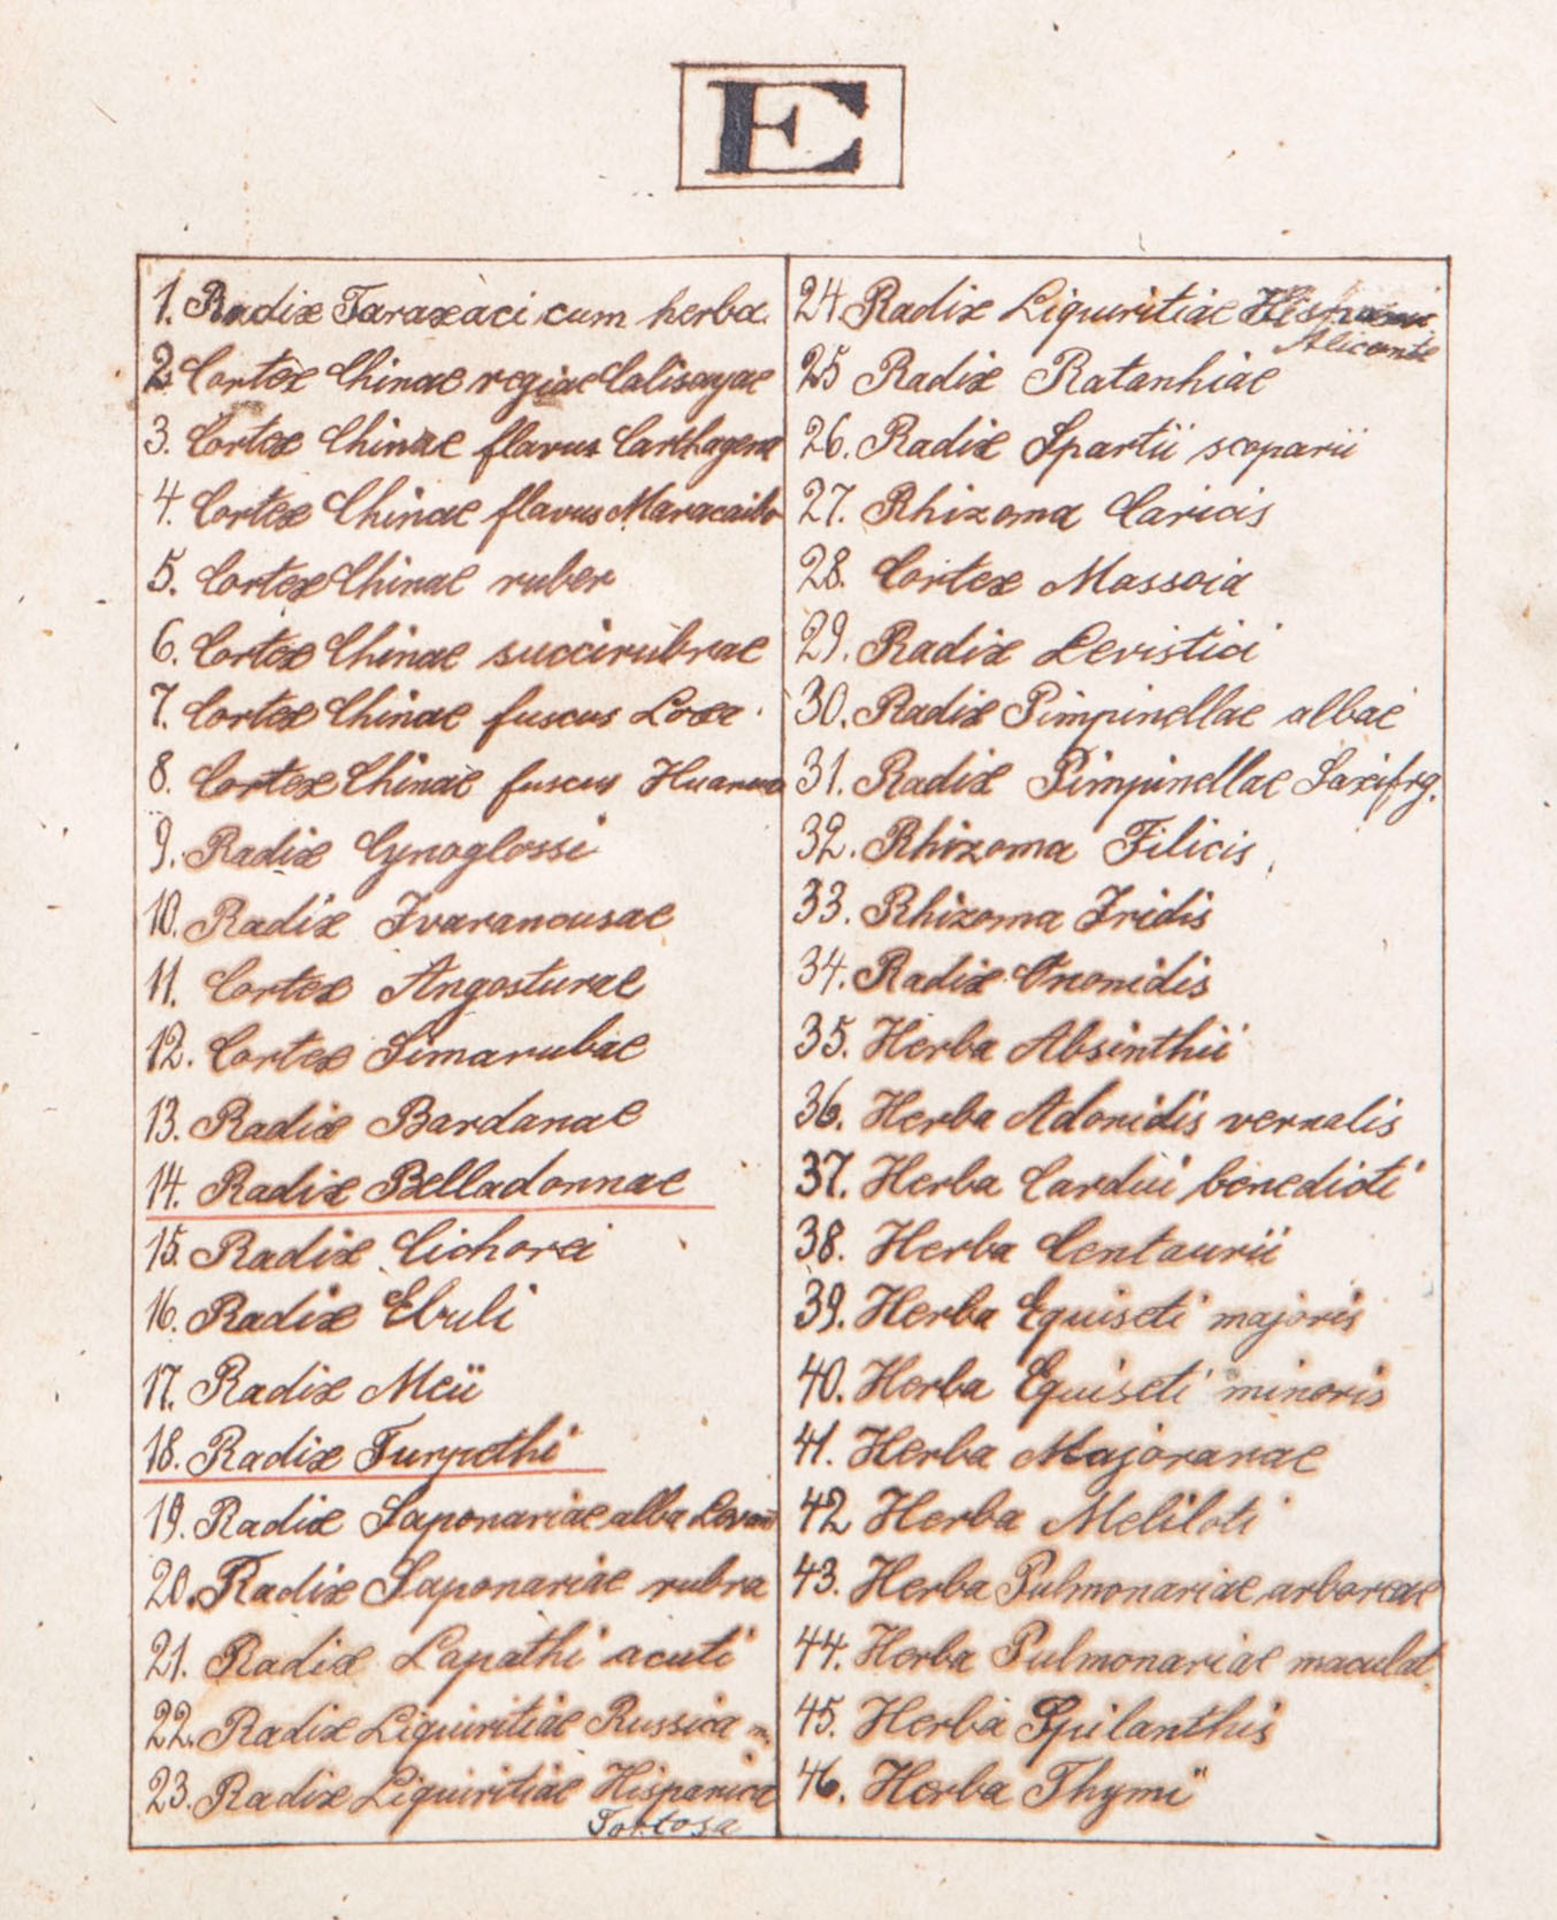 E
1. Radix Taraxaci cum herba.
2. Cortex Chinae regiae Calisayae
3. Cortex Chinae flavus Carthagena
4. Cortex Chinae flavus Maracaibo
5. Cortex Chinae ruber
6. Cortex Chinae succirubrae
7. Cortex Chinae fuscus Loxa.
8. Cortex Chinae fuscus
9. Radix Cynoglossi
10. Radix Ivaranousae
11. Cortex Angosturae
12. Cortex Simarubae
13. Radix Bardanae
14. Radix Belladonnae
15. Radix Cichorei
16. Radix Ebuli
17. Radix Meii
18. Radix Turpethi
19. Radix Saponariae alba
20. Radix Saponariae rubra
21. Radix Lapathi acuti
22. Radix Liquiritiae Russica m.
23. Radix Liquiritiae Hispanica
Tortosa
24 Radix Liquiritiae
Alicante
25 Radix Ratanhiae
26. Radix Spartii scoparii
27. Rhizoma Caricis
28. Cortex Massoia
29. Radix Levistici
30. Radix Pimpinellae albae
31. Radix Pimpinellae Saxifrg.
32. Rhizoma Filicis
33. Rhizoma Iridis
34. Radix Ononidis
35. Herba Absinthii
36. Herba Adonidis vernalis
37. Herba Cardui benedicti
38. Herba Centaurii
39. Herba Equiseti majoris
40. Herba Equiseti minoris
41. Herba Majoranae
42 Herba Meliloti
43. Herba Pulmonariae arboreae
44. Herba Pulmonariae maculat.
45. Herba Spilanthis
46. Herba Thymi